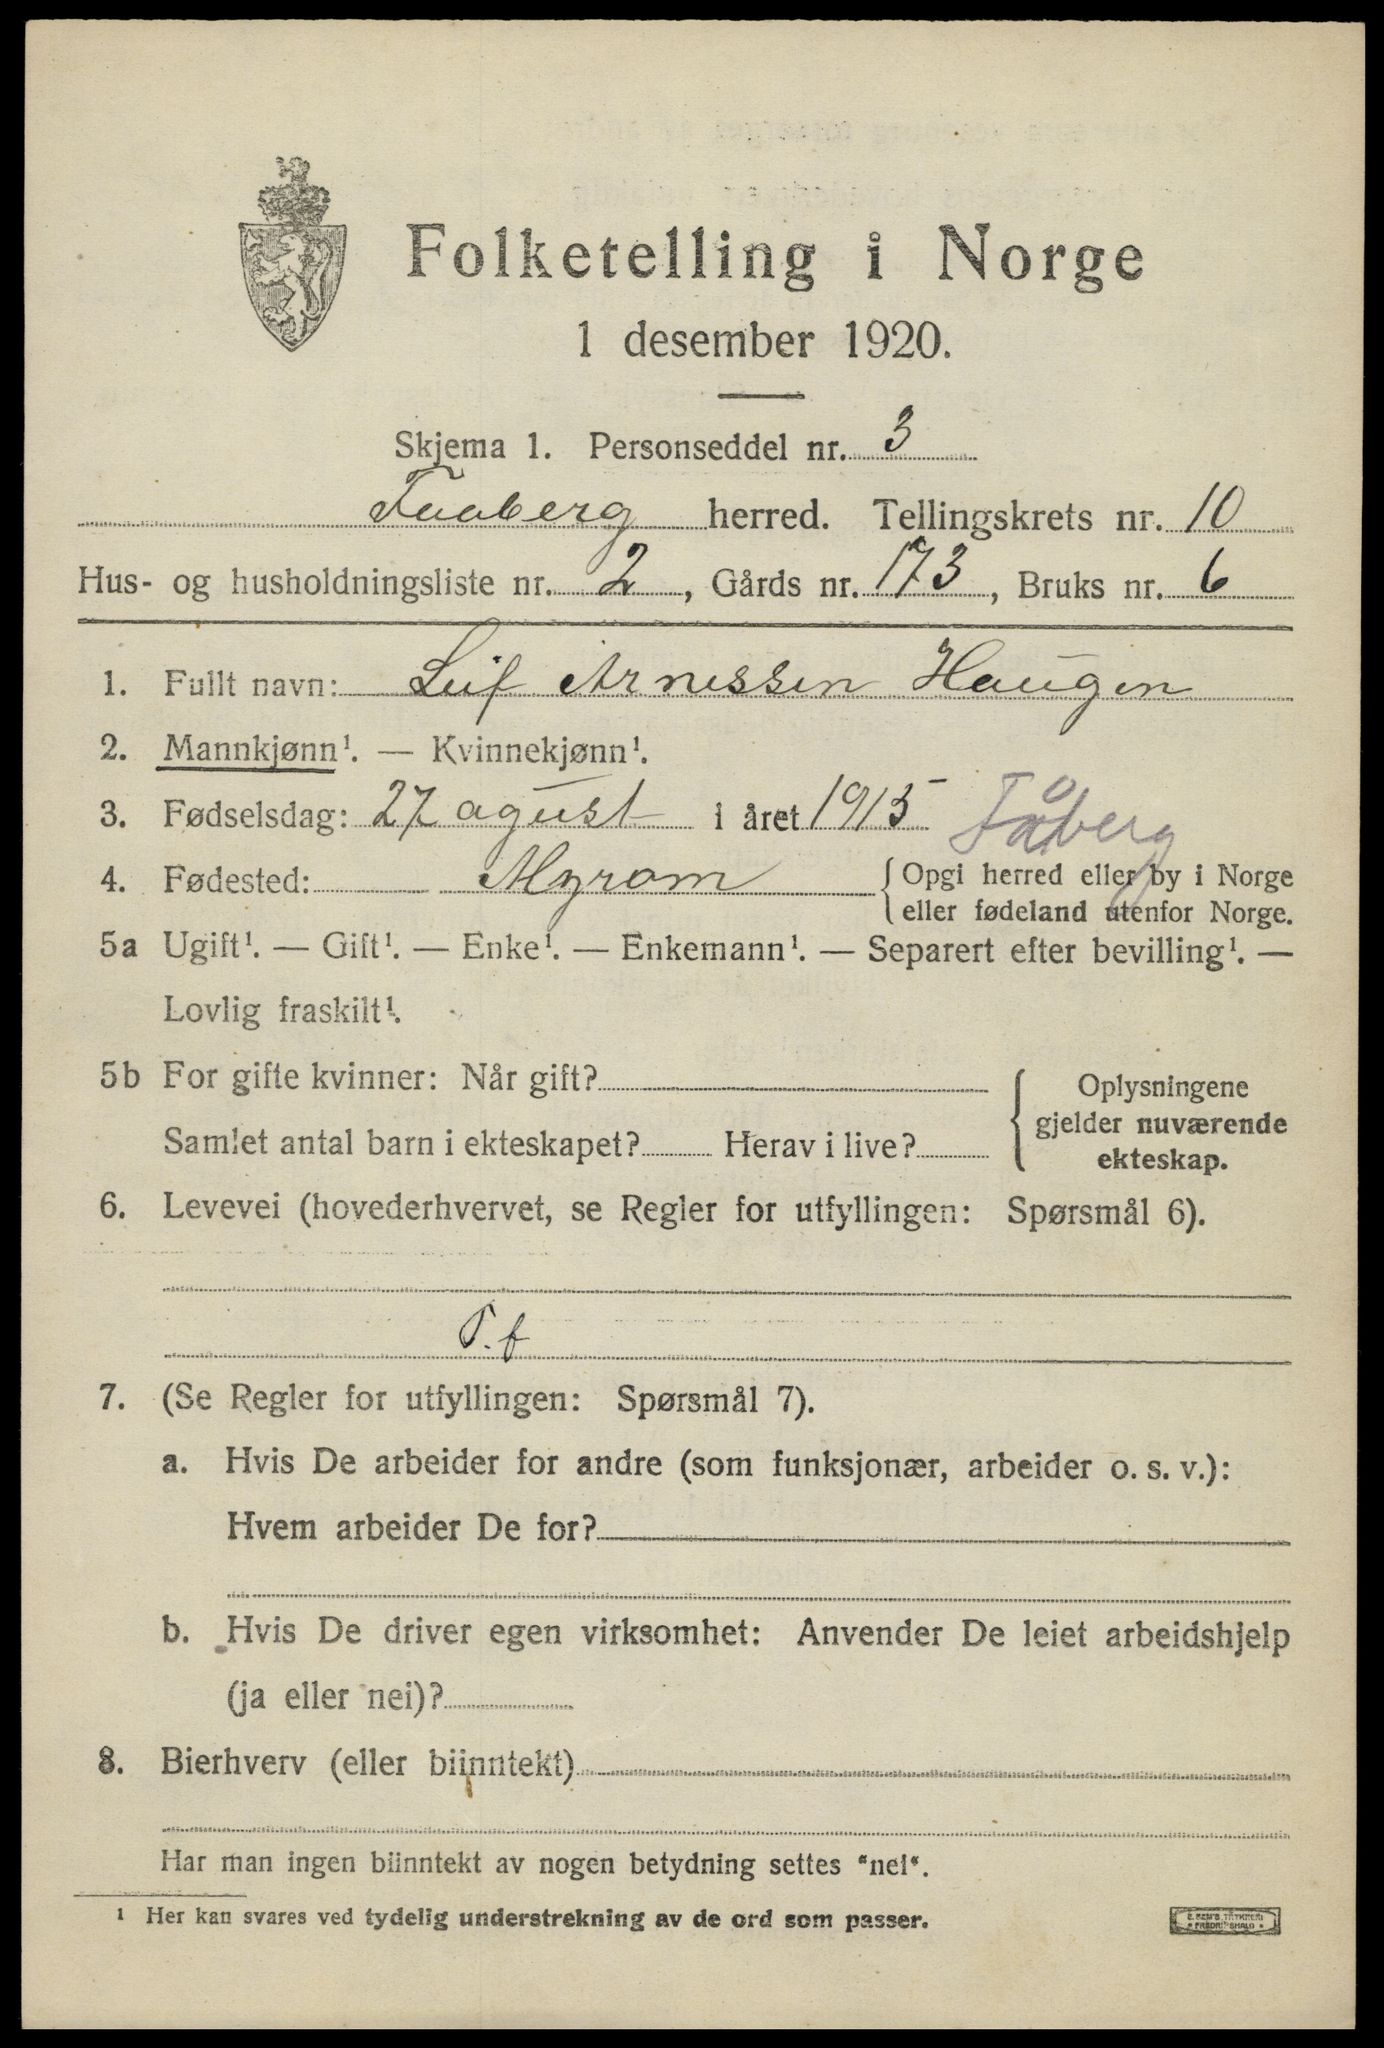 Folketelling i Norge
1 desember 1920.
Skjema 1. Personseddel nr. 3
Faaberg herred. Tellingskrets nr. 10
Hus- og husholdningsliste nr. 2, Gårds nr. 173, Bruks nr. 6
1. Fullt navn: Leif Arnessen Haugen
2. Mannkjønn¹. — Kvinnekjønn¹.
3. Fødselsdag: 27 agust i året 1915 Fåberg
4. Fødested: Myrom { Opgi herred eller by i Norge
eller fødeland utenfor Norge.
5a Ugift¹. — Gift¹. — Enke¹. — Enkemann¹. — Separert efter bevilling¹. —
Lovlig fraskilt¹.
5b For gifte kvinner: Når gift?
Samlet antal barn i ekteskapet? Herav i live?
Oplysningene
gjelder nuværende
ekteskap.
6. Levevei (hovederhvervet, se Regler for utfyllingen: Spørsmål 6).
7. (Se Regler for utfyllingen: Spørsmål 7).
a. Hvis De arbeider for andre (som funksjonær, arbeider o. s. v.):
Hvem arbeider De for?
b. Hvis De driver egen virksomhet: Anvender De leiet arbeidshjelp
(ja eller nei)?
8. Bierhverv (eller biinntekt)
Har man ingen biinntekt av nogen betydning settes "nei".
¹ Her kan svares ved tydelig understrekning av de ord som passer.